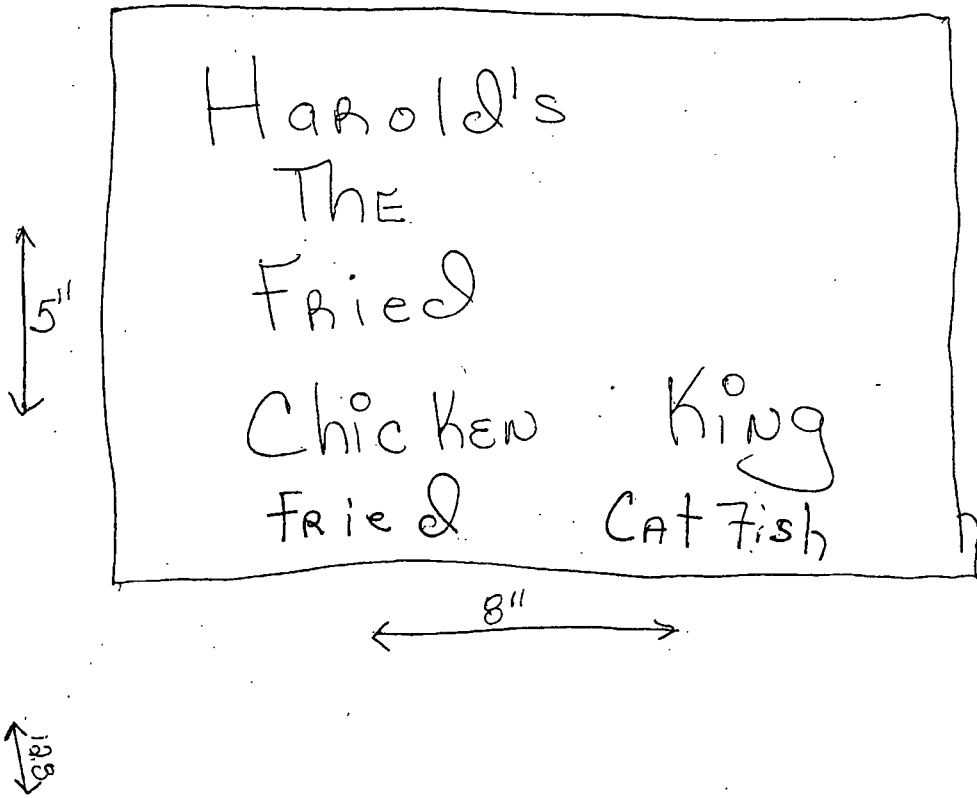 Harold's
The
Fried
5"
Chicken King
Fried Catfish
8"